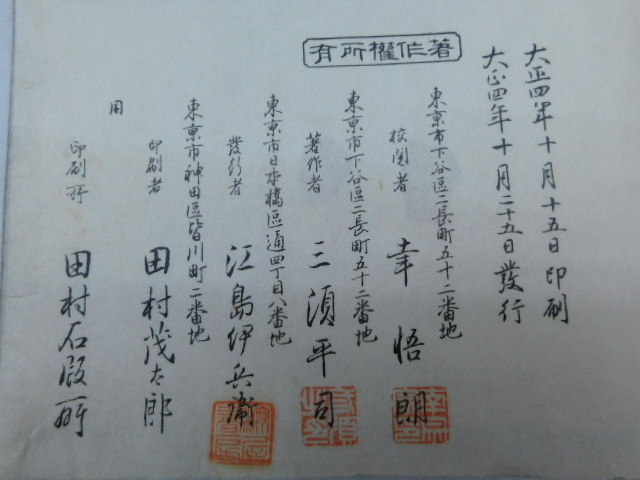 著作權所有
大正四年十月十五日印刷
大正四年十月二十五日發行
東京市下谷區二長町五十二番地
校閲者 幸悟朗
東京市下谷區二長町五十二番地
著作者 三須平司
東京市日本橋區通四丁目八番地
發行者 江島伊兵衞
東京市神田區皆川町二番地
印刷者 田村茂太郎
同
印刷所 田村石版所